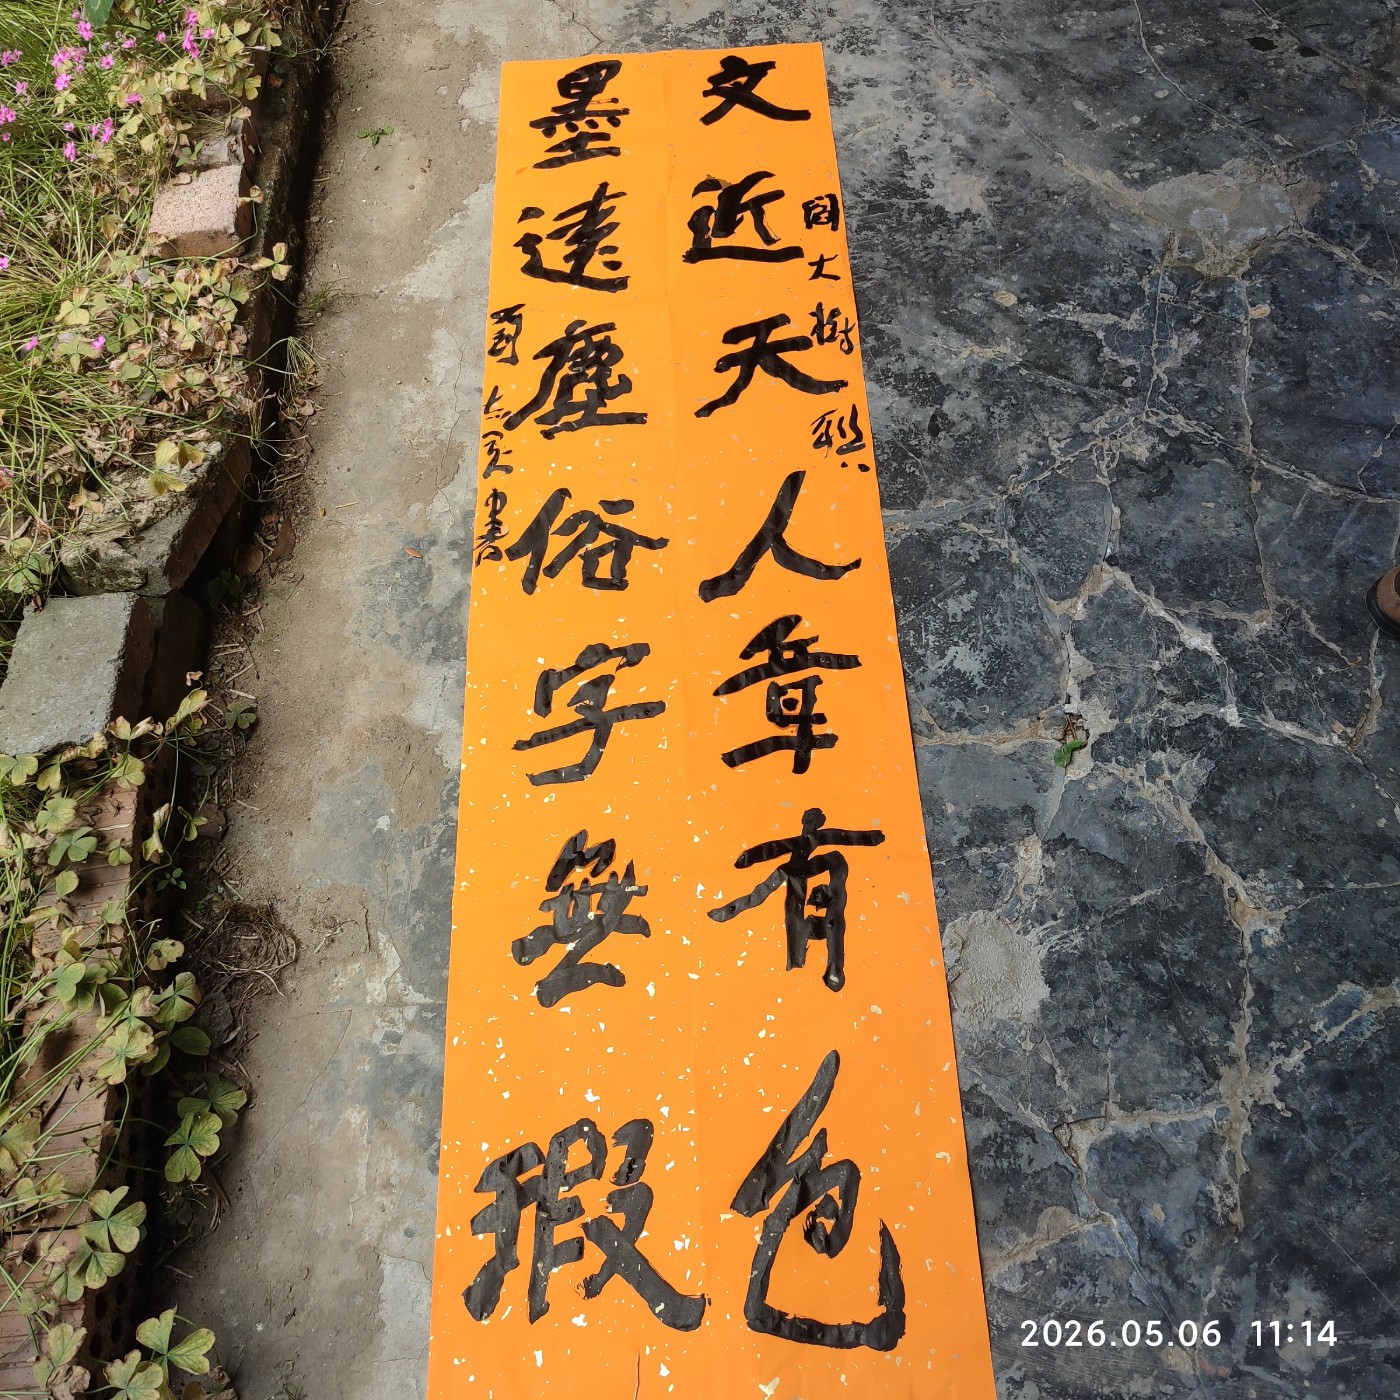 文近天人章有色
國大樹联
墨遠塵俗字無瑕
書
2026.05.06 11:14